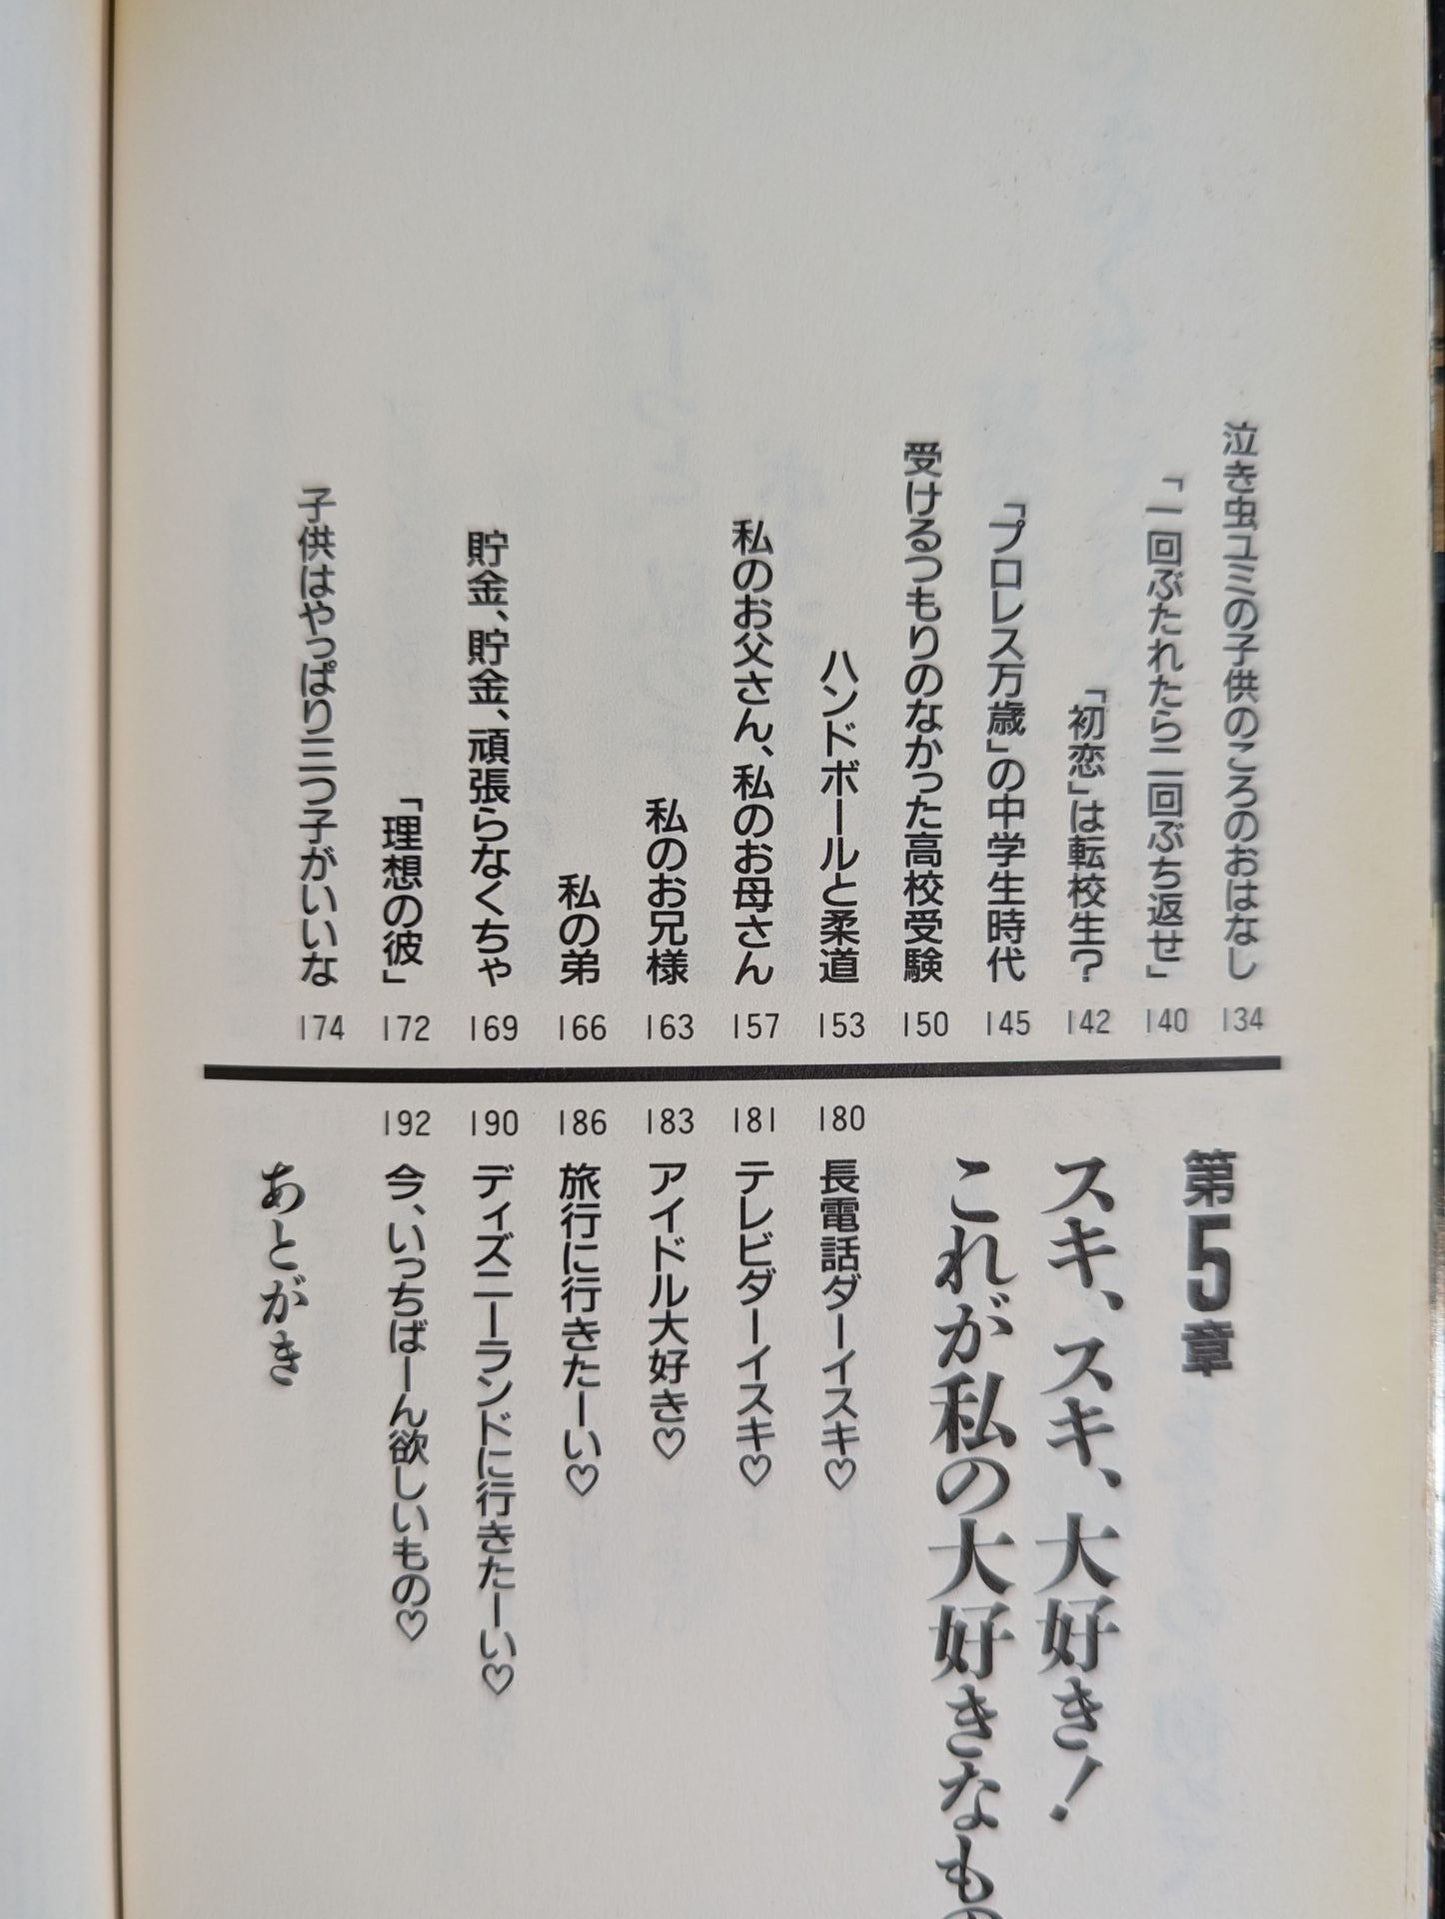 泣き虫ユミの子供のころのおはなし 134
「一回ぶたれたら二回ぶち返せ」 140
「初恋」は転校生? 142
「プロレス万歳」の中学生時代 145
受けるつもりのなかった高校受験 150
ハンドボールと柔道 153
私のお父さん、私のお母さん 157
私のお兄様 163
私の弟 166
貯金、貯金、頑張らなくちゃ 169
「理想の彼」 172
子供はやっぱり三つ子がいいな 174
第5章
スキ、スキ、大好き!
これが私の大好きなもの
180 長電話ダーイスキ♡
181 テレビダーイスキ♡
183 アイドル大好き♡
186 旅行に行きたーい♡
190 ディズニーランドに行きたーい♡
192 今、いっちばーん欲しいもの♡
あとがき